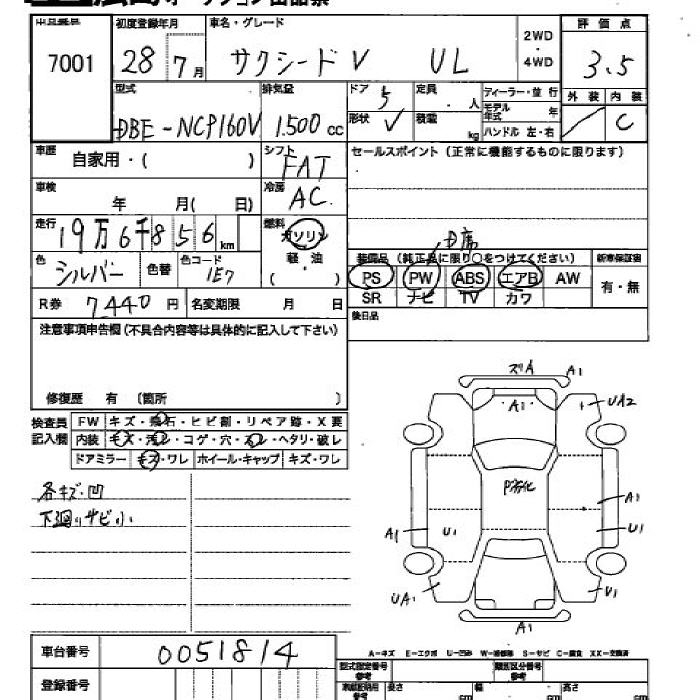 7001
初度登録年月
28年7月
車名・グレード
サクシードV UL
2WD
・
4WD
評価点
3.5
外装 内装
C
型式
DBE-NCP160V
排気量
1.500 cc
ドア 5
形状
定員 ・ 人
積載 kg
ディーラー・並行
モデル年式 年
ハンドル 左・右
車歴 自家用・( )
シフト FAT
セールスポイント(正常に機能するものに限ります)
車検 年 月( 日)
冷房 AC
走行 19万6千856 km
燃料 ガソリン
軽・油
( )
色 シルバー 色替 色コード 1E7
D席
装備品(純正品に限り○をつけてください) 新車保証書
PS PW ABS エアB AW 有・無
SR ナビ TV カワ
R券 7440円 名変期限 月 日
後日品
注意事項申告欄(不具合内容等は具体的に記入して下さい)
修復歴 有 (箇所 )
検査員記入欄
FW キズ・飛石・ヒビ割・リペア跡・X要
内装 キズ・汚レ・コゲ・穴・スレ・ヘタリ・破レ
ドアミラー キズ・ワレ ホイール・キャップ キズ・ワレ
各キズ・凹
下廻りサビ小
ズリA A1
・A1・
UA2
P劣化
A1
A1 U1 U1
UA1 U1
A1
A-キズ E-エクボ U-凹み W-補修跡 S-サビ C-腐食 XX-交換済
車台番号 0051814
登録番号
型式指定番号 参考
類別区分番号 参考
長さ cm 幅 cm 高さ cm